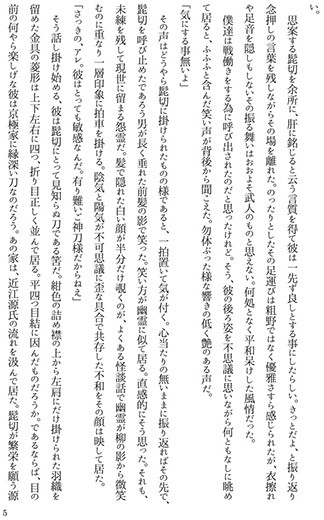 い。
　思案する髭切を余所に、肝に銘じると云う言質を得て彼は一先ず良しとする事にしたらしい。きっとだよ、と振り返り
念押しの言葉を残しながらその場を離れた。のったりとしたその足運びは粗野ではなく優雅さすら感じられたが、衣擦れ
や足音を隠しもしないその振る舞いはおおよそ武人のものと思えない。何処となく平和呆けした風情だった。
　僕達は戦働きをする為に呼び出されたのだと思ったけれど。そう、彼の後ろ姿を不思議に思いながら何ともなしに眺め
て居ると、ふふふと含んだ笑い声が背後から聞こえた。勿体ぶった様な響きの低く艶のある声だ。
「気にする事無いよ」
　その声はどうやら髭切に掛けられたものの様であると、一拍置いて気が付く。心当たりの無いままに振り返ればその先で、
髭切を呼び止めたであろう男が長く垂れた前髪の影で笑った。笑い方が幽霊に似て居る。直感的にそう思った。それも、
未練を残して現世に留まる怨霊だ。髪で隠れた白い顔が半分だけ覗くのが、よくある怪談話で幽霊が柳の影から微笑
むのに重なり一層印象に拍車を掛ける。陰気と陽気が不可思議に歪な具合で共存した不和をその顔は映して居た。
「さっきの、アレ。彼はとっても敏感なんだ。有り難いご神刀様だからねえ」
　そう話し掛け始める、彼は髭切にとって見知らぬ刀である筈だ。紺色の詰め襟の上から左肩にだけ掛けられた羽織を
留めた金具の菱形は上下左右に四つ、折り目正しく並んで居る。平四つ目結に因んだものだろうか。であるならば、目の
前の何やら楽しげな彼は京極家に縁深い刀なのだろう。あの家は、近江源氏の流れを汲んで居た。髭切が繁栄を願う源
5